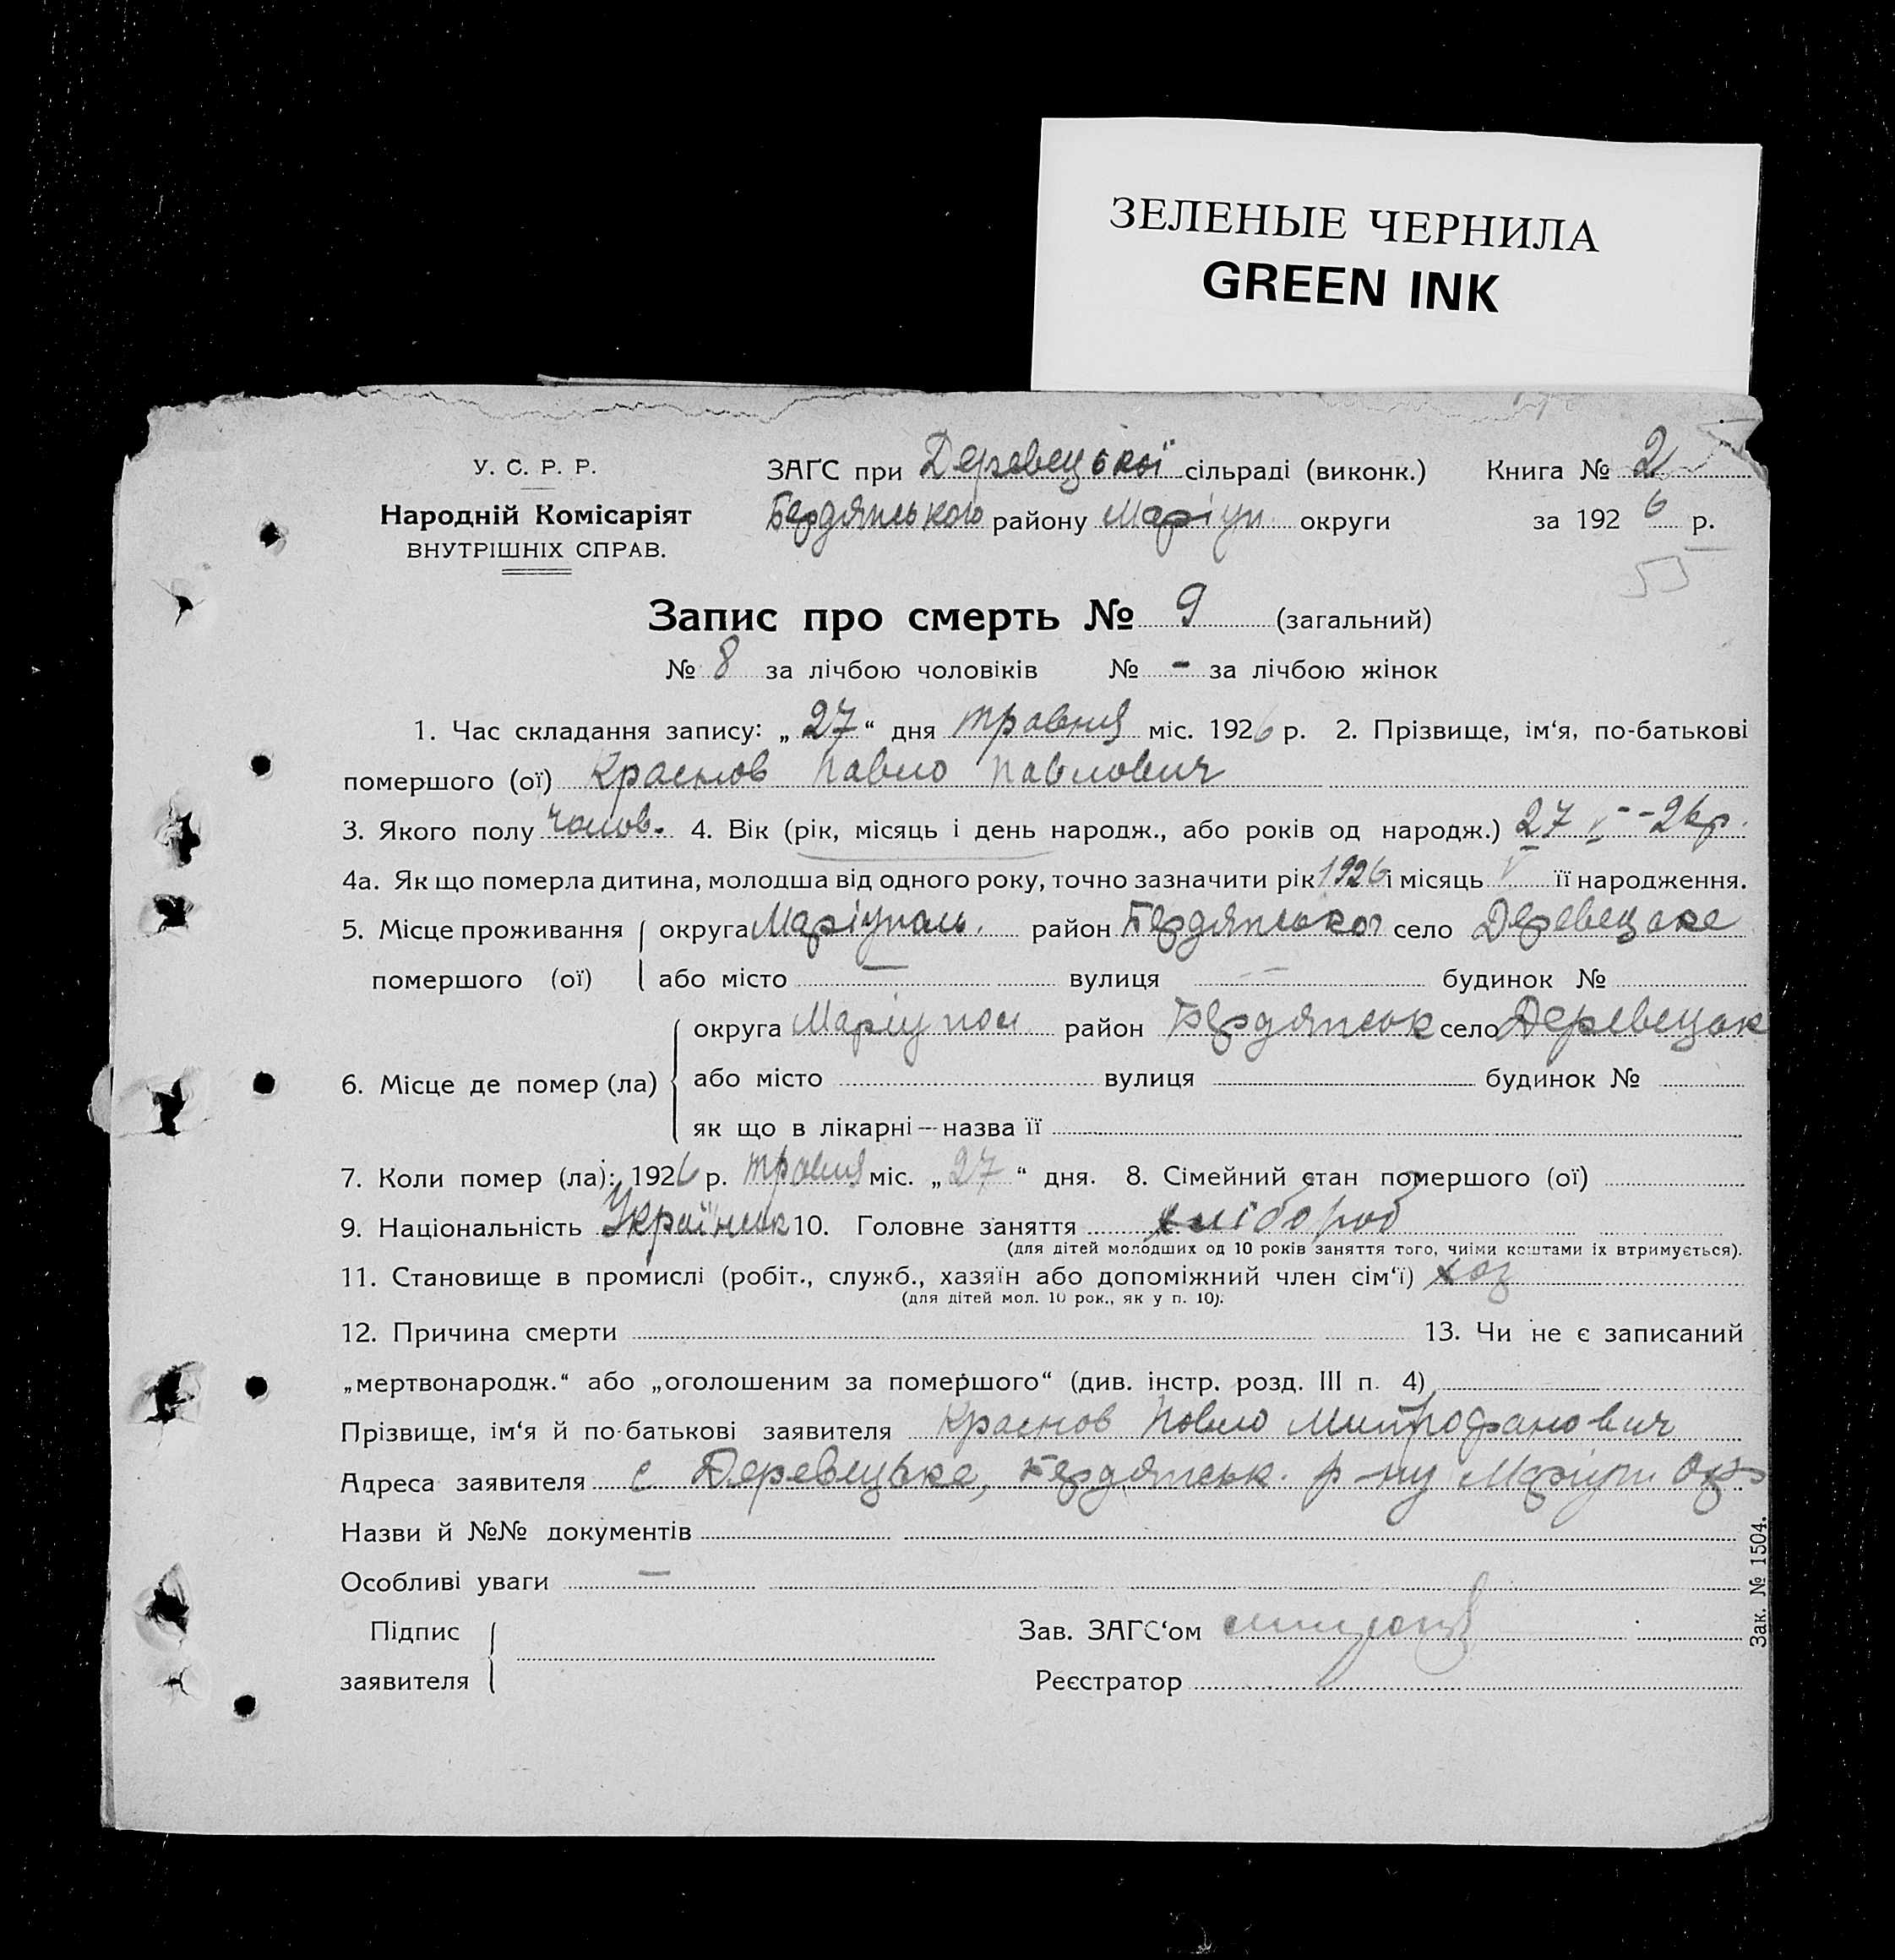 ЗЕЛЕНЫЕ ЧЕРНИЛА
GREEN INK
У. С. Р. Р.
Народній Комісаріят
ВНУТРІШНІХ СПРАВ.
ЗАГС при Деревецької сільраді (виконк.) Книга № 2
Бердянського району Маріуп. округи за 1926 р.
55
Запис про смерть № 9 (загальний)
№ 8 за лічбою чоловіків № - за лічбою жінок
1. Час складання запису: „27“ дня травня міс. 1926 р. 2. Прізвище, ім‘я, по-батькові
помершого (ої) Краснов Павло Павлович
3. Якого полу чолов. 4. Вік (рік, місяць і день народж., або років од народж.) 27 V - 26 р.
4а. Як що померла дитина, молодша від одного року, точно зазначити рік 1926 і місяць V її народження.
5. Місце проживання помершого (ої) округа Маріуполь. район Бердянськ село Деревецьке
або місто — вулиця — будинок №
6. Місце де помер (ла) округа Маріупол район Бердянськ село Деревецьк
або місто вулиця будинок №
як що в лікарні — назва її
7. Коли помер (ла): 1926 р. травня міс. „27“ дня. 8. Сімейний стан помершого (ої)
9. Національність Українськ 10. Головне заняття хлібороб
(для дітей молодших од 10 років заняття того, чиїми коштами їх втримується).
11. Становище в промислі (робіт., служб., хазяїн або допоміжний член сім‘ї) хоз
(для дітей мол. 10 рок., як у п. 10).
12. Причина смерти 13. Чи не є записаний
„мертвонародж.“ або „оголошеним за помершого“ (див. інстр. розд. III п. 4)
Прізвище, ім‘я й по-батькові заявителя Краснов Павло Митрофанович
Адреса заявителя с Деревецьке, Бердянськ. р-ну Маріуп. Окр
Назви й №№ документів
Особливі уваги —
Підпис заявителя
Зав. ЗАГС‘ом
Реєстратор
Зак. № 1504.